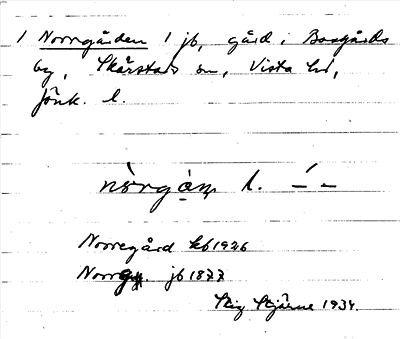 1 Norrgården 1 jb, gård i Bosgårds
by, Skärstads sn, Vista hd,
Jönk. l.
nòrgạ́ṇ l. –́ –
Norregård kb 1926
Norrg. jb 1877
Stig Stjärne 1934.